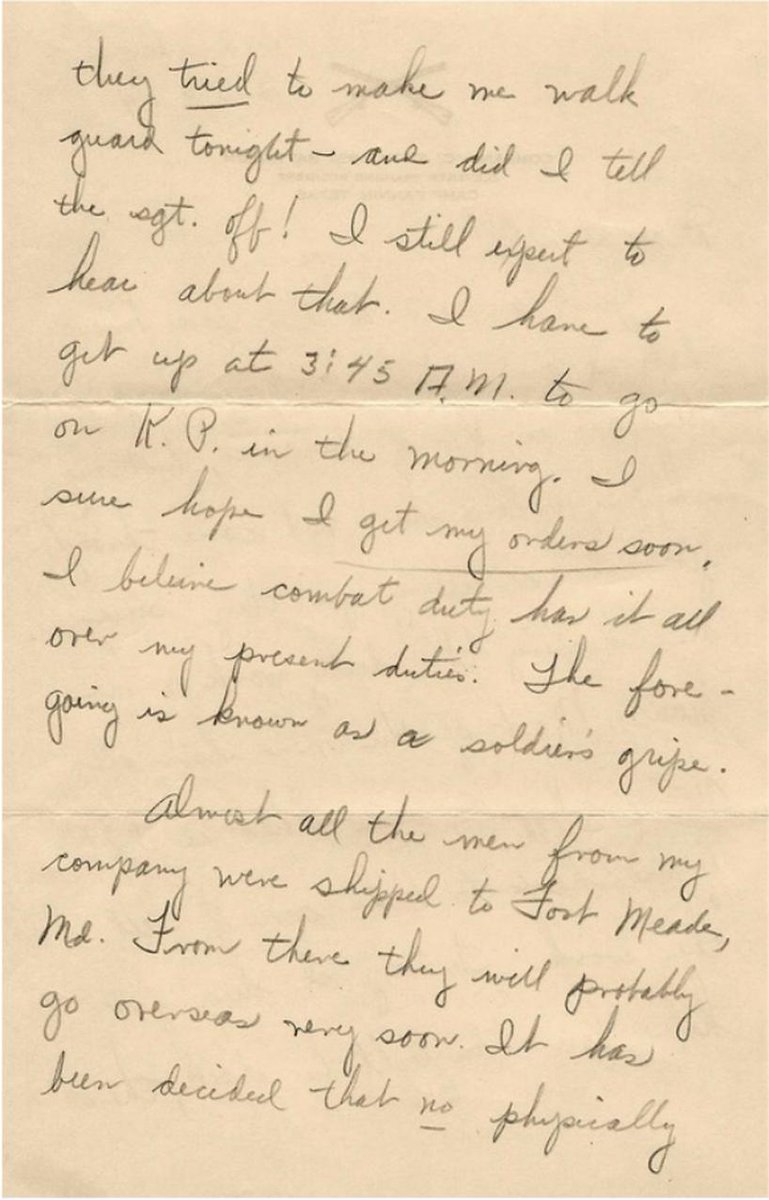 they tried to make me walk
guard tonight – and did I tell
the sgt. off! I still expect to
hear about that. I have to
get up at 3:45 A.M. to go
on K.P. in the morning. I
sure hope I get my orders soon.
I beleive combat duty has it all
over my present duties. The fore-
going is known as a soldier's gripe.
Almost all the men from my
company were shipped to Fort Meade,
Md. From there they will probably
go overseas very soon. It has
been decided that no physically